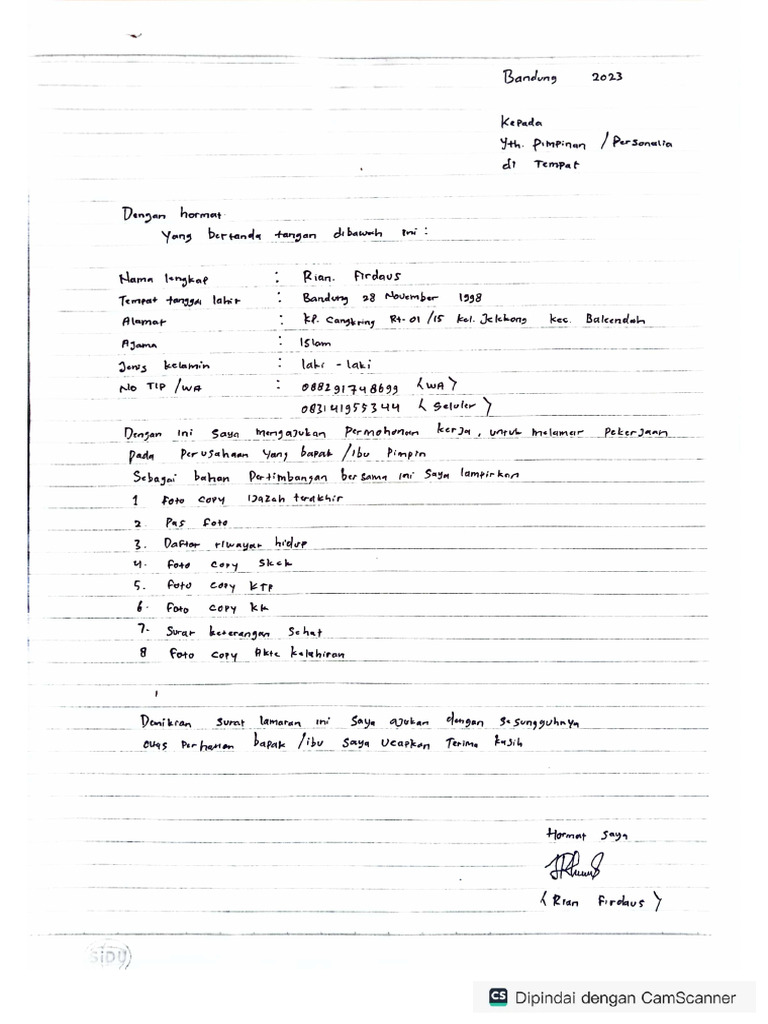 Bandung 2023
Kepada
Yth. Pimpinan / Personalia
di Tempat
Dengan hormat.
Yang bertanda tangan dibawah ini :
Nama lengkap : Rian. Firdaus
Tempat tanggal lahir : Bandung 28 November 1998
Alamat : KP. Cangkring Rt. 01 / 15 Kel. Jelekong Kec. Baleendah
Agama : Islam
Jenis kelamin : laki - laki
No TlP / WA : 088291748699 (WA)
083141955344 (Seluler)
Dengan ini saya mengajukan Permohonan kerja, untuk melamar Pekerjaan
pada Perusahaan yang bapak / ibu Pimpin
Sebagai bahan Pertimbangan bersama ini saya lampirkan
1 Foto copy Ijazah terakhir
2. Pas foto
3. Daftar riwayat hidup
4. Foto copy Skck
5. Foto copy KTP
6. Foto copy KK
7. Surat keterangan Sehat
8 Foto copy Akte kelahiran
Demikian surat lamaran ini saya ajukan dengan sesungguhnya
bapak / ibu saya ucapkan Terima kasih
Hormat saya
(Rian Firdaus)
SiDU
CS Dipindai dengan CamScanner